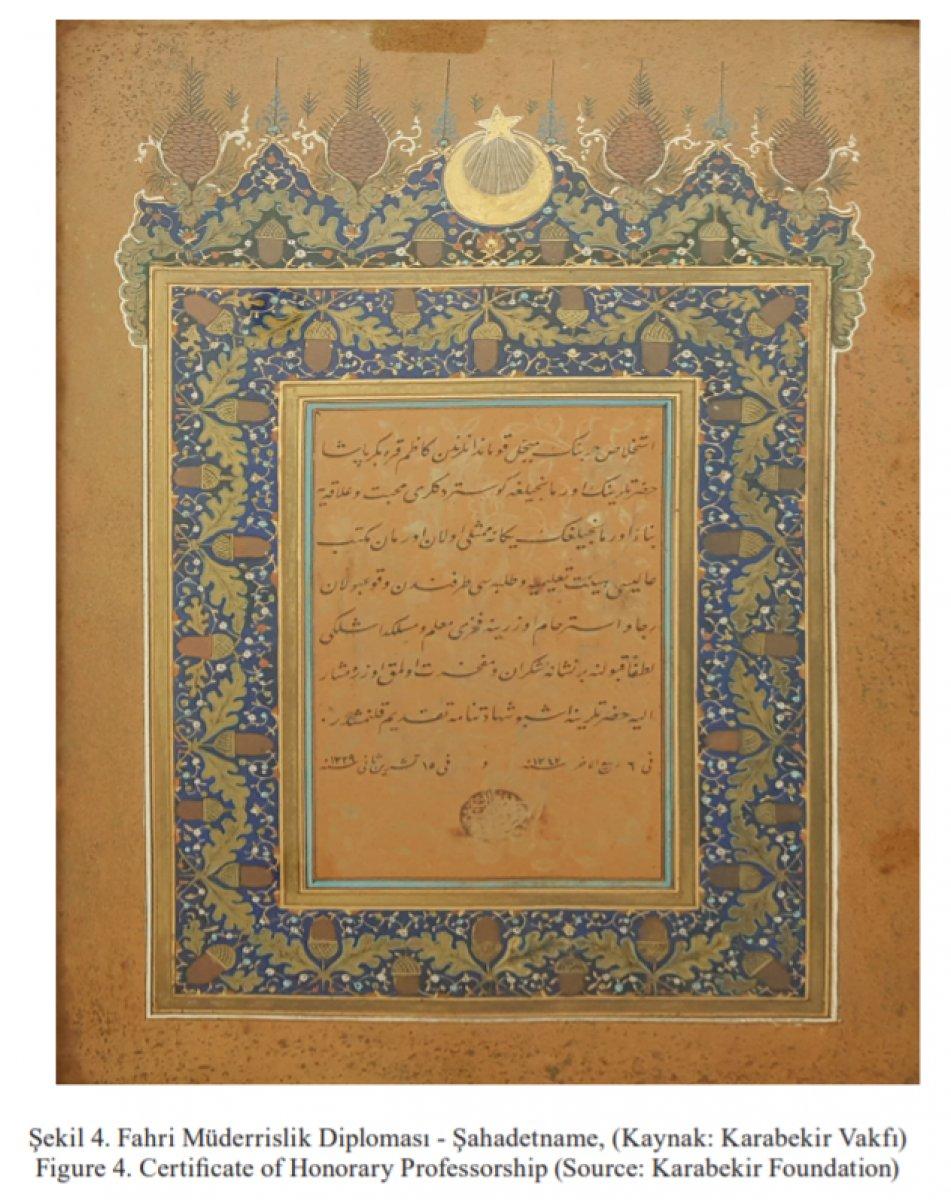 استخلاص حربنك مبجل قوماندانلرندن كاظم قره بكر پاشا
حضرتلرينك اورمانجيلغه كوستردكلرى محبت وعلاقه‌يه
بناءً اورمانجيلغك يكانه ممثلى اولان اورمان مكتب
عاليسى هيئت تعليميه وطلبه‌سى طرفندن وقوعبولان
رجا و استرحام اوزرينه فخرى معلم ومسلكداشلغى
لطفاً قبولنه بر نشانه شكران ومفخرت اولمق اوزره مشار
اليه حضرتلرينه اشبو شهادتنامه تقديم قلنمشدر.
فى ٦ ربيع الاخر سنه ١٣٤٢ و فى ١٥ تشرين ثانى سنه ١٣٣٩
Şekil 4. Fahri Müderrislik Diploması - Şahadetname, (Kaynak: Karabekir Vakfı)
Figure 4. Certificate of Honorary Professorship (Source: Karabekir Foundation)